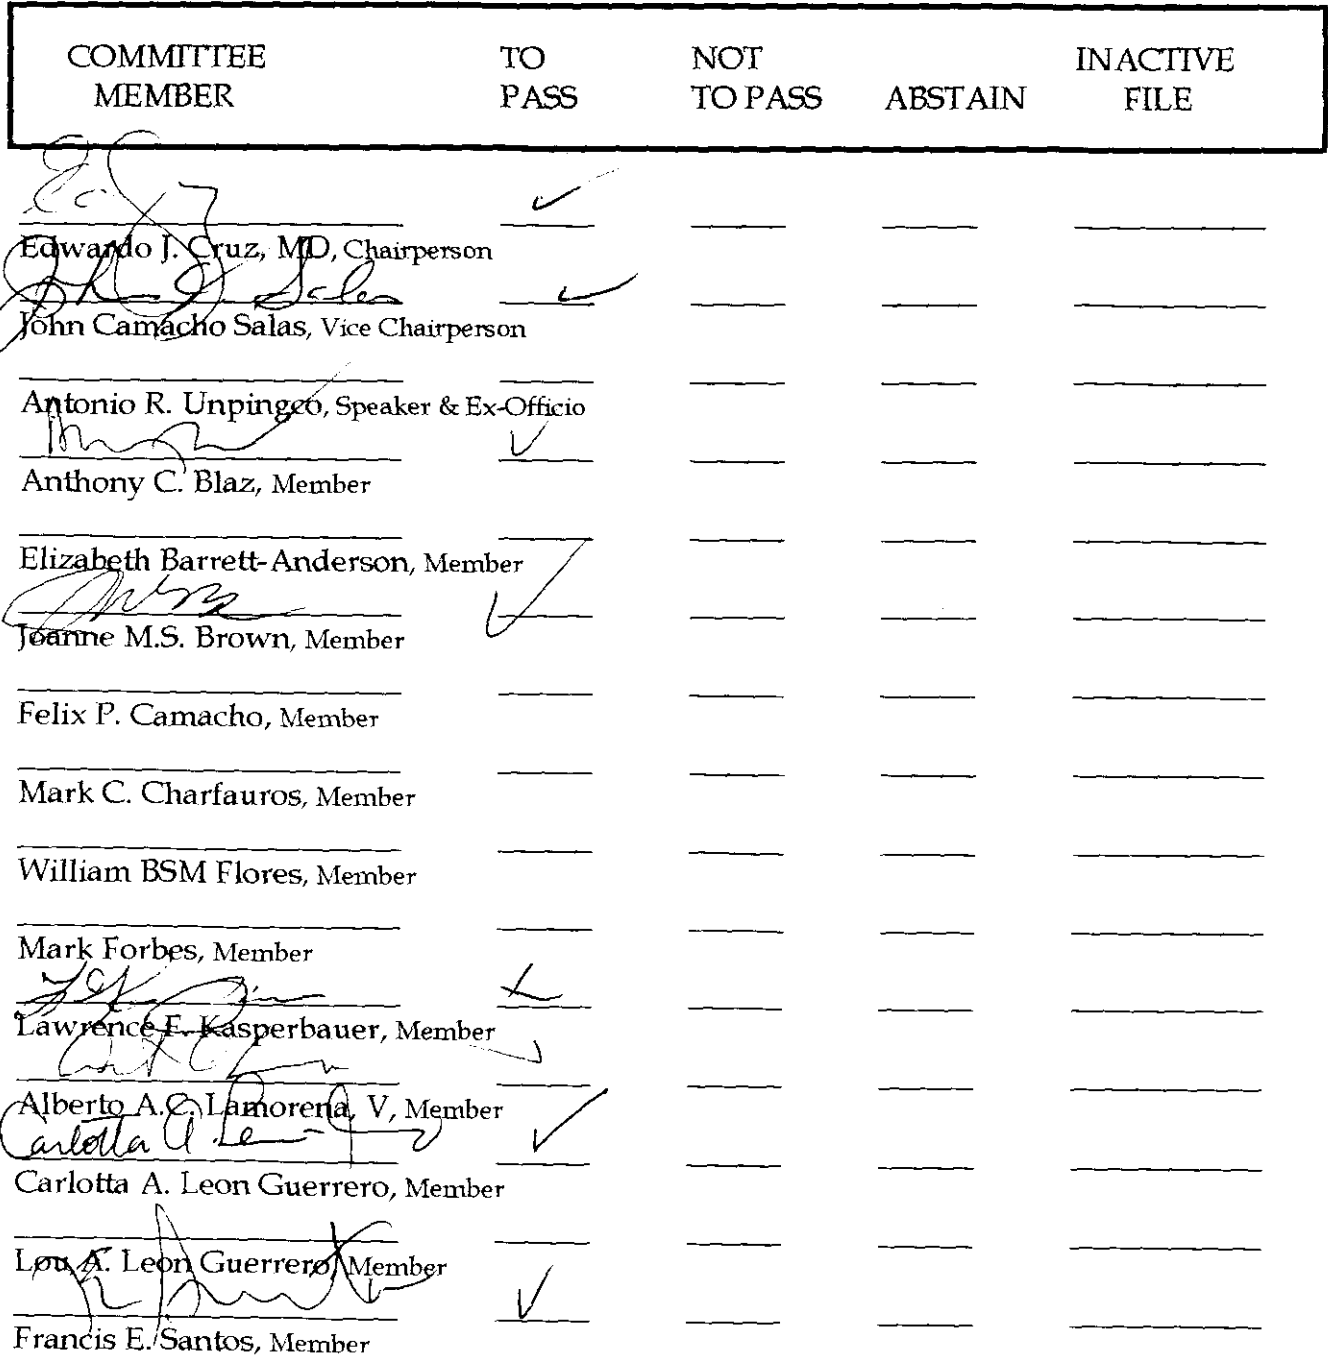 COMMITTEE TO NOT INACTIVE
MEMBER PASS TO PASS ABSTAIN FILE
Edwardo J. Cruz, MD, Chairperson
John Salas
John Camacho Salas, Vice Chairperson
Antonio R. Unpingco, Speaker & Ex-Officio
Anthony C. Blaz, Member
Elizabeth Barrett-Anderson, Member
Joanne M.S. Brown, Member
Felix P. Camacho, Member
Mark C. Charfauros, Member
William BSM Flores, Member
Mark Forbes, Member
Lawrence F. Kasperbauer, Member
Alberto A.C. Lamorena, V, Member
Carlotta A. Leon
Carlotta A. Leon Guerrero, Member
Lou A. Leon Guerrero, Member
Francis E. Santos, Member